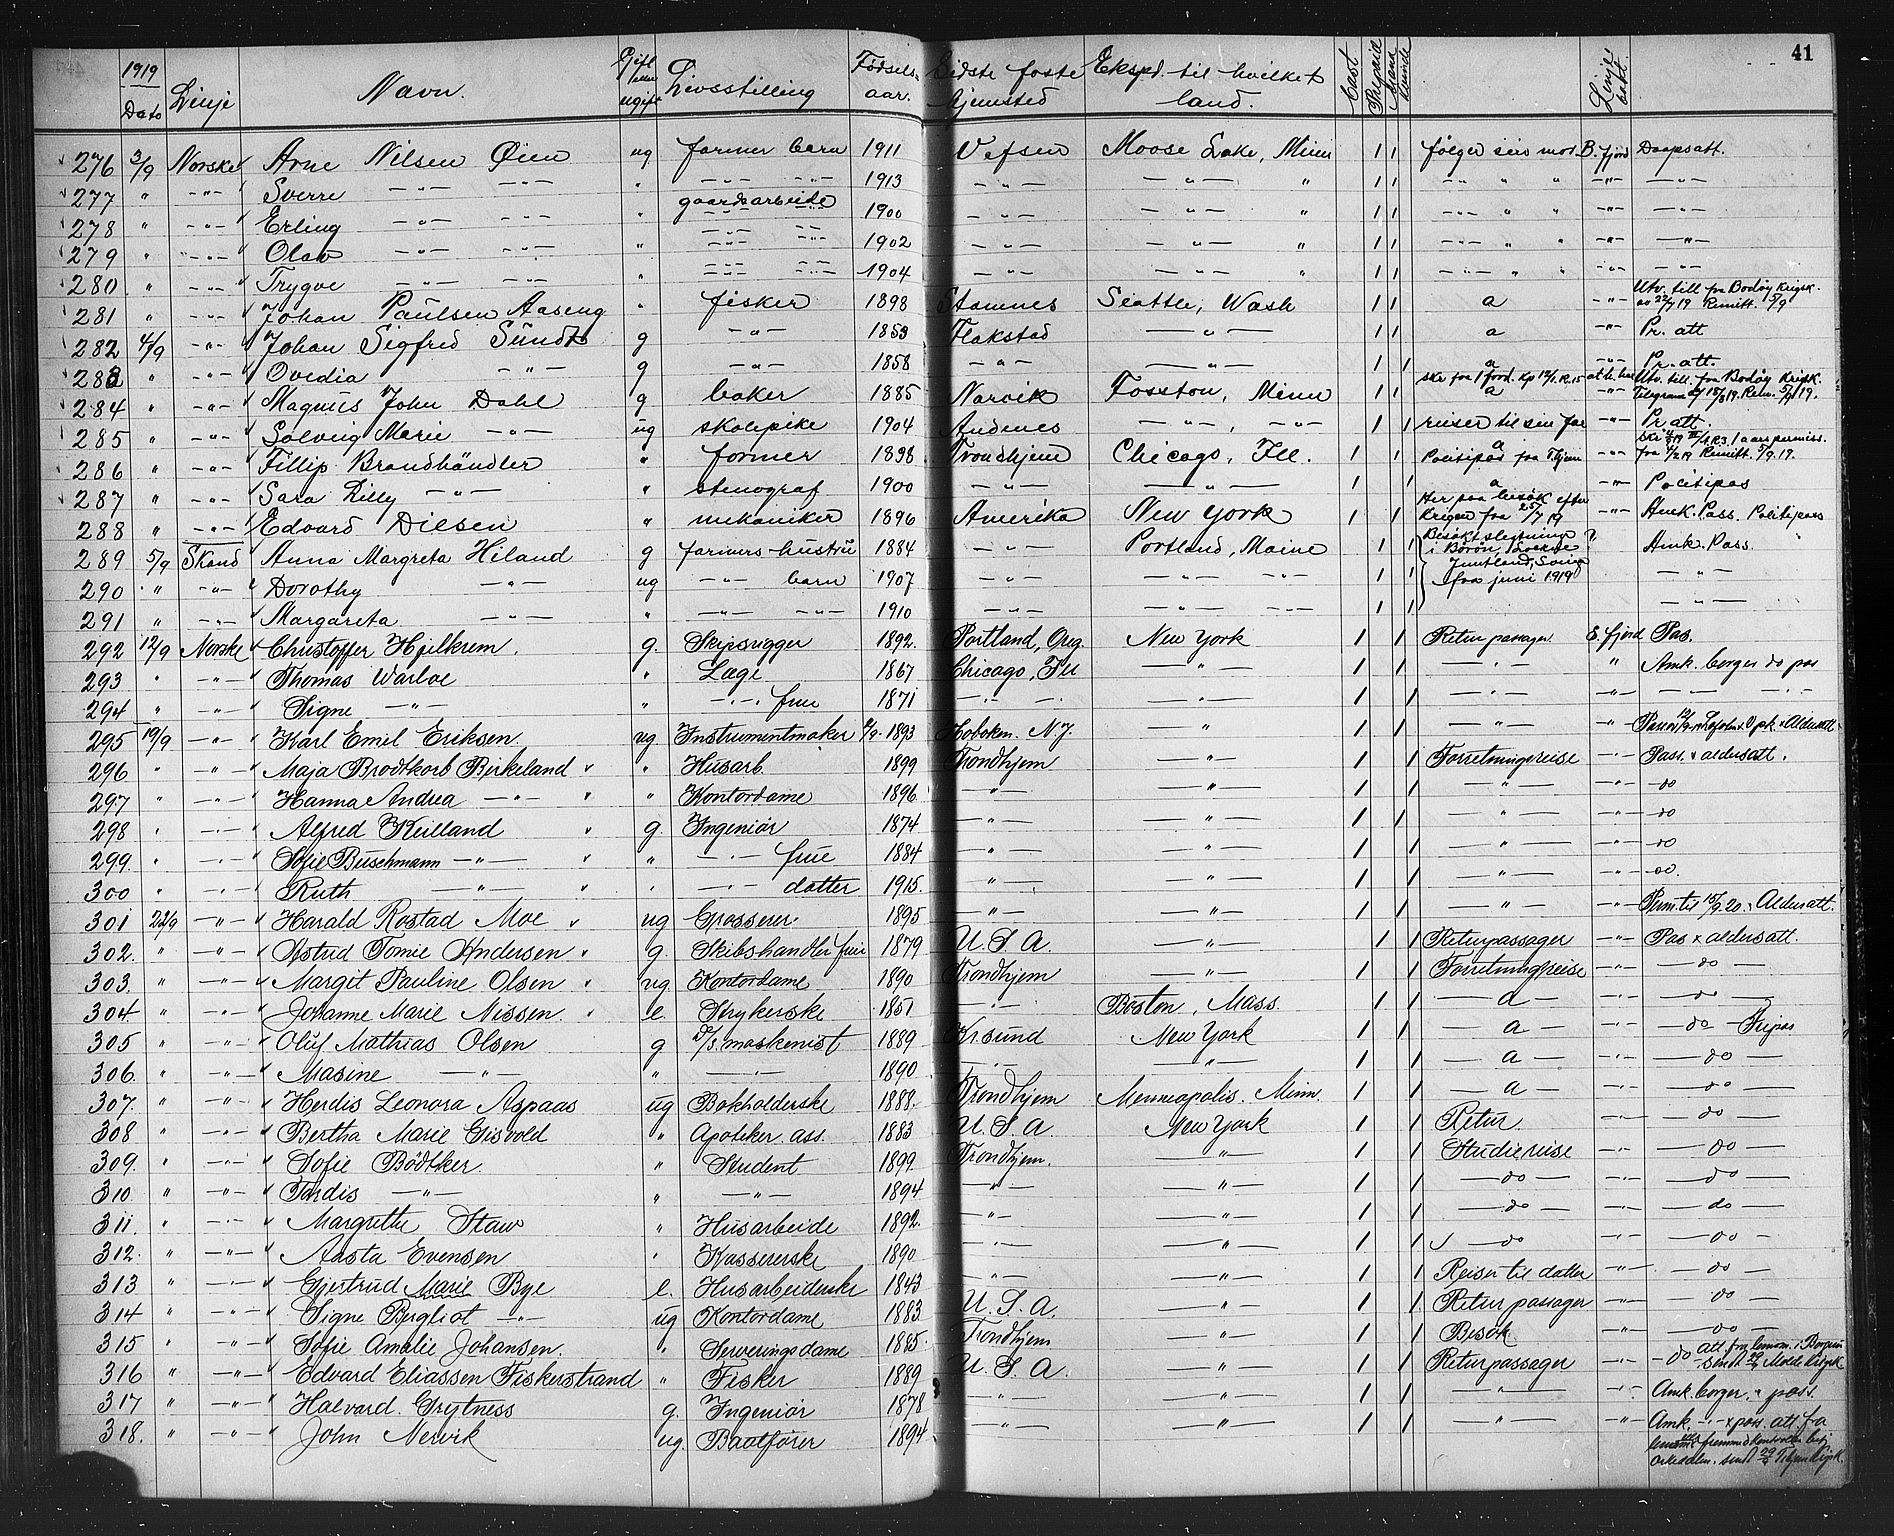 41
1919 Dato Linje Navn. Gift eller ugift Livsstilling Fødsels- aar. Sidste faste hjemsted Eksped. til hvilket land. Cast Prepaid Mand Kvinde Linje baat.
276 3/9 Norske Arne Nilsen Øien ug farmer barn 1911 Vefsen Moose Lake, Minn 1 1 følger sin mor B. fjord Daapsatt.
277 " -"- Sverre -"- -"- " -"- -"- 1913 -"- -"- " 1 1 -"- " " -"- -"-
278 " -"- Erling -"- -"- " gaardsarbeide 1900 -"- -"- " 1 1 -"- " " -"- -"-
279 " -"- Olav -"- -"- " -"- -"- 1902 -"- -"- " 1 1 -"- " " -"- -"-
280 " -"- Trygve -"- -"- " -"- -"- 1904 -"- -"- " 1 1 -"- " " -"- -"-
281 " -"- Johan Paulsen Aaseng " fisker 1898 Stamnes Seattle, Wash 1 1 a -"- Utv. till fra Bodøy Krigsk. av 22/7 19 Remitt. 5/9
282 4/9 -"- Johan Sigfred Sundt g -"- 1853 Flakstad -"- 1 1 a -"- Pr. att
283 " -"- Ovedia -"- g -"- 1858 -"- -"- 1 1 a -"- Pr. att.
284 " -"- Magnus John Dahl g baker 1885 Narvik Fosston, Minn 1 1 a -"- Utv. till. fra Bodøy Krigsk.
285 " -"- Solveig Marie -"- ug skolepike 1904 Andenes -"-, -"- 1 1 reiser til sin far -"- Pr. att.
286 " -"- Fillip Brandhändler " former 1898 Trondhjem Chicago, Ill. 1 1 a Politipas fra Thjem -"-
287 " -"- Sara Lilly -"- " stenograf 1900 -"- -"- 1 1 a -"- Politipas
288 " -"- Edvard Dilsen " mekaniker 1896 Amerika New York 1 1 Her paa besøk efter Krigen fra 25/7 19 -"- Amk. Pass. Politipass
289 5/9 Skand Anna Margreta Hiland g farmers hustru 1884 -"- Portland, Maine 1 1 Besøkt slegtninge i Amk. Pass.
290 " -"- Dorothy -"- ug -"- barn 1907 -"- -"- -"- 1 1 fra juni 1919 -"-
291 " -"- Margareta -"- " -"- -"- 1910 -"- -"- -"- 1 1 -"-
292 12/9 Norske Christoffer Hjelkrem. g. Skipsrigger 1892. Portland, Oreg. New York 1 1 Retur passager. E. fjord Pas.
293 " -"- Thomas Warloe " Læge 1867 Chicago, Ill -"- 1 1 -"- " Amk. borger do pas
294 " -"- Signe -"- " -"- frue 1871 -"- -"- 1 1 -"- -"- -"- -"-
295 19/9 -"- Karl Emil Eriksen. ug Instrumentmaker 1893 Hoboken. N.J. " 1 1 -"- "
296 " -"- Maja Brodtkorb Birkeland " " Husarb. 1899 Trondhjem -"- 1 1 Forretningsreise -"- Pass. x aldersatt.
297 " -"- Hanna Andrea -"- " " Kontordame 1896. -"- -"- 1 1 -"- " -do
298 " -"- Alfred Keilland " g. Ingeniør 1874 -"- -"- 1 1 -"- -"- -do
299. " -"- Sofie Buschmann -"- " " -"- frue 1884 -"- -"- 1 1 -"- -"- -do
300 " -"- Ruth -"- " " -"- datter 1915. -"- -"- 1 1 -"- -"- -do.
301 22/9 -"- Harald Rostad Moe " ug Grosserer 1895 -"- -"- 1 1 -"- -"- Perm. til 15/9. 20. x Aldersatt.
302. " -"- Astrid Tomie Andersen " g. Skibshandler frue 1879 U.S.A. -"- 1 1 Returpassager -"- Pas x aldersatt.
303. " -"- Margit Pauline Olsen " ug Kontordame 1890 Trondhjem -"- 1 1 Forretningsreise -"- -do-
304 " -"- Johanne Marie Nissen. " e. Strykerske 1851 -"- Boston, Mass. 1 1 -a- -"- -do-
305 " -"- Oluf Mathias Olsen g D/S. maskenist 1889 Krsund New York 1 1 -a- -"- -do- Fripas
306. " -"- Masine -"- " -"- 1890 -"- -"- 1 1 -a- -"- -do-
307. " -"- Herdis Leonora Aspaas ug Bokholderske 1888. Trondhjem Menneapolis. Minn. 1 1 -a- -"- -do-
308 " -"- Bertha Marie Gisvold " Apoteker ass. 1883 U.S.A. New York 1 1 Retur. -"- -do-
309. " -"- Sofie Bödtker. " Student 1899. Trondhjem. -"- 1 1 Studiereise -"- -do-
310. " -"- Tordis -"- " -"- 1894 -"- -"- 1 1 -do- -"- -do-
311. " -"- Margrethe Staw " Husarbeide 1892. -"- -"- 1 1 -do- -"- -do-
312. " -"- Aasta Evensen " Kassererske 1890. -"- -"- 1 1 -do -"- -do-
313 " -"- Gjertrud Marie Bye e. Husarbeiderske 1843 -"- -"- 1 1 Reiser til datter -"- -do-
314 " -"- Signe Bergliot -"- ug Kontordame 1883. U.S.A. -"- 1 1 Retur passager -"- -do-
315 " -"- Sofie Amalie Johansen. " Serveringsdame 1885. Trondhjem -"- 1 1 Besøk -"- -do-
316 " -"- Edvard Eliassen Fiskerstrand " Fisker 1889 U.S.A. -"- 1 1 Returpassager -"- -do att. fra lensm. i Borgun
317 " -"- Halvard Grytness g. Ingeniør 1878 -"- -"- 1 1 -"- -"- Amk. borger. x pass.
318. " -"- John Nervik ug. Baatfører 1894 -"- -"- 1 1 -"- -"- Amk. -"- x pass. att fra